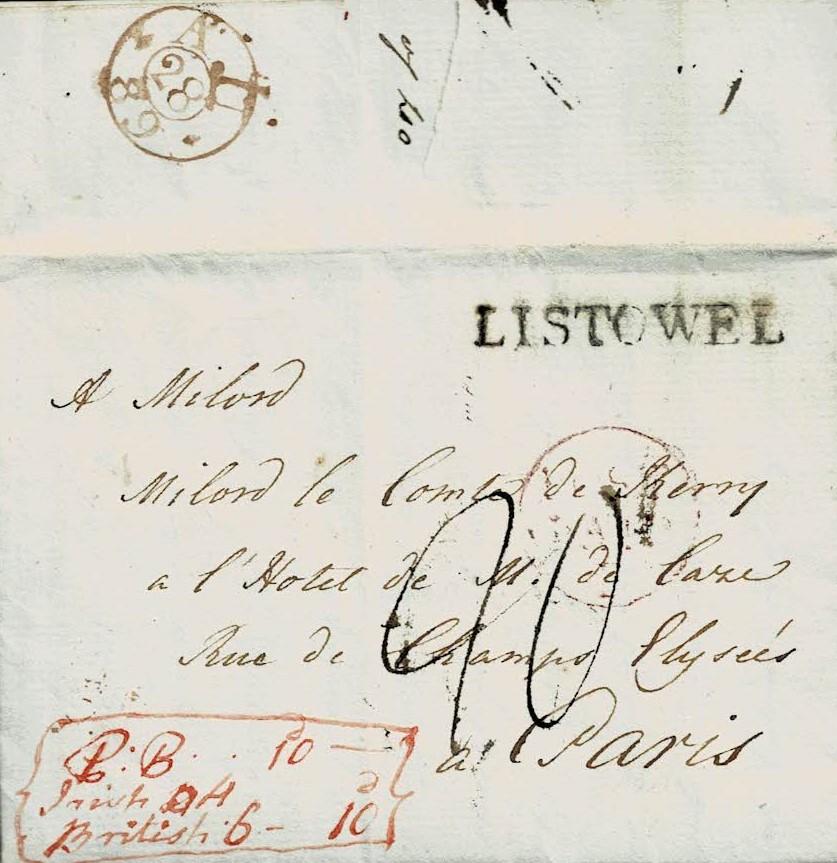 A
28
LISTOWEL
A Milord
Milord le Comte de Kerry
a l'Hotel de M. de Caze
Rue de Champs Elyseés
a Paris
90
P. B. 10 —
Irish 4
British 6 - 10